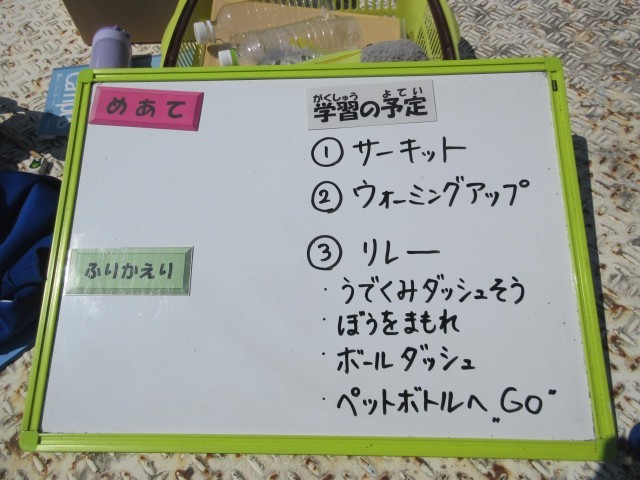 めあて
がくしゅう よてい
学習の予定
① サーキット
② ウォーミングアップ
③ リレー
ふりかえり
・うでくみダッシュそう
・ぼうをまもれ
・ボールダッシュ
・ペットボトルへ„GO"